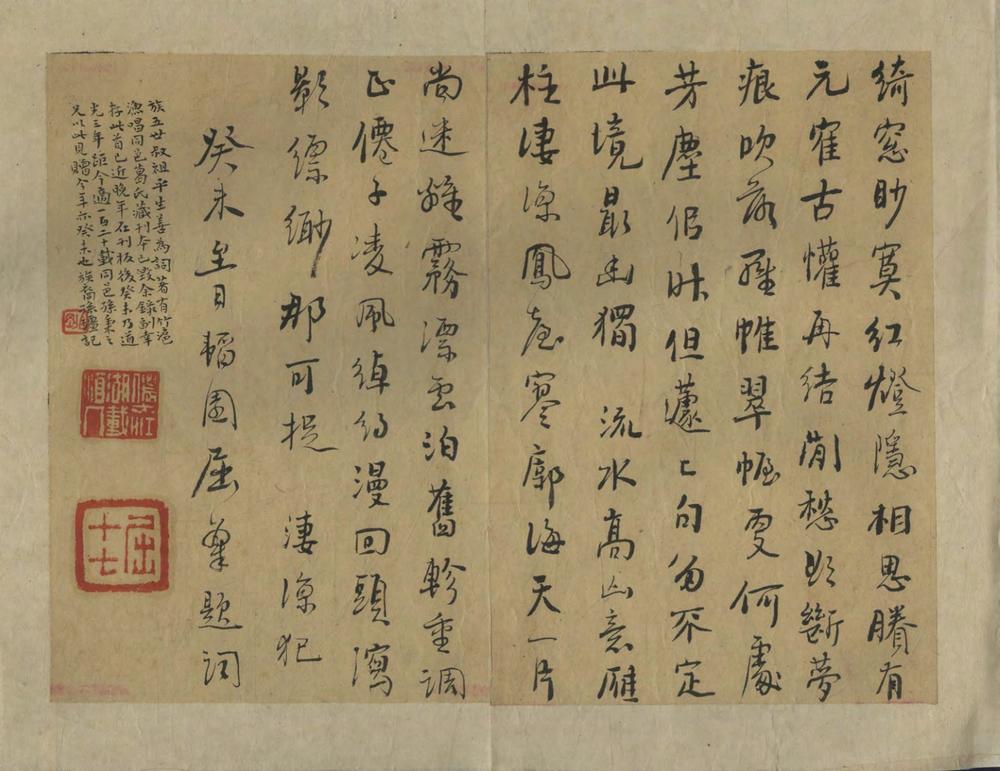 綺窓眇寞紅燈隱相思賸有
元寉古懽再結愁斷夢
痕吹落羅帷翠幄更何處
芳塵但蘧匆不定
此境最幽獨 流水高山意雁
柱凄涼鳳臺寥廓海天一片
尚迷離霧漂雲泊舊軫重調
正僊子凌風綽約漫回頭瀉
影縹緲那可捉 淒涼犯
癸未至日韜園屈題詞
族五世叔祖平生善為詞著有竹滬
漁唱同邑葛氏藏刊本已毀余錄副幸
存此首已近晚年在刊板後癸未乃道
光三年距今適一百二十載同邑孫秉之
又以此見贈今年亦癸未也族裔孫彊記
屈十七